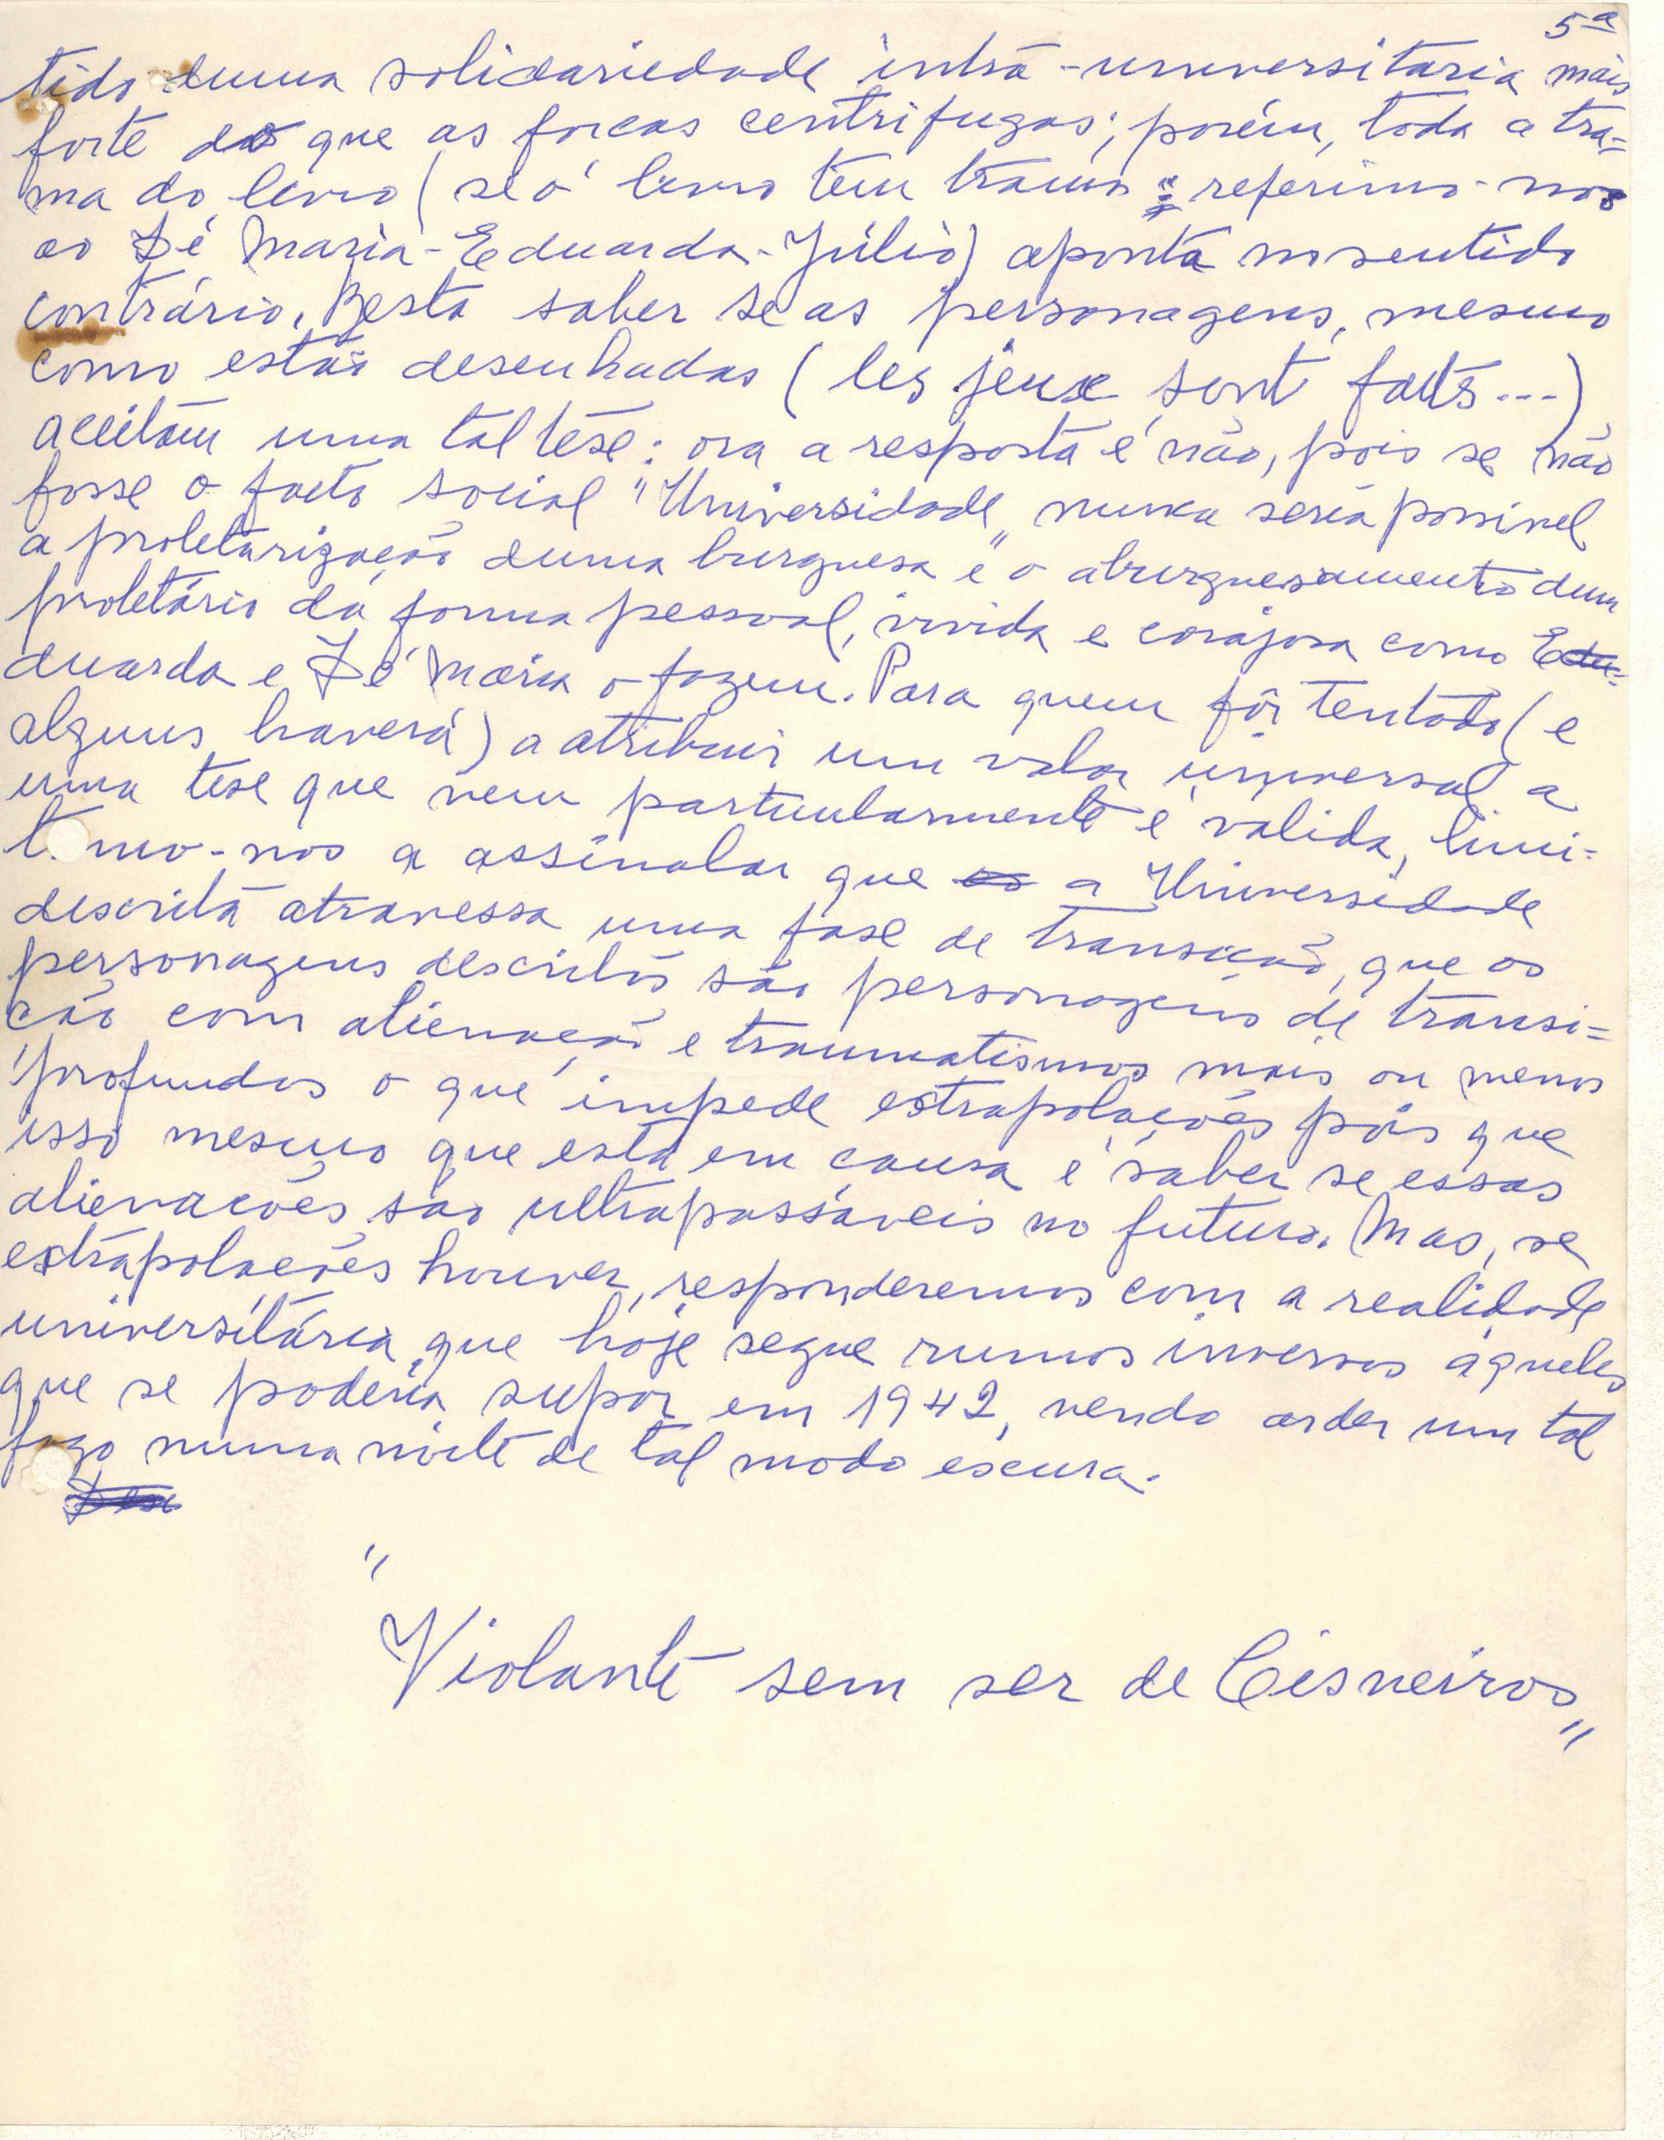 5ª
tido duma solidariedade intra-universitária mais
forte do que as forças centrifugas; porém, toda a tra-
ma do livro (se o livro tem trama: referimo-nos
ao Zé Maria-Eduarda-Júlio) aponta no sentido
contrário. Resta saber se as personagens, mesmo
como estão desenhadas (les jeux sont faits...)
aceitam uma tal tese: ora a resposta é não, pois se não
fosse o facto social "Universidade" nunca seria possivel
a proletarização duma burguesa e o aburguesamento dum
proletário da forma pessoal, vivida e corajosa como E
duarda e Zé Maria o fazem. Para quem fôr tentado (e
alguns haverá) a atribuir um valor universal a
uma tese que nem particularmente é válida, limi-
tamo-nos a assinalar que a Universidade
descrita atravessa uma fase de transição, que os
personagens descritos são personagens de transi-
ção com alienação e traumatismos mais ou menos
profundos o que impede extrapolações pois que
isso mesmo que está em causa é saber se essas
alienações são ultrapassáveis no futuro. Mas, se
extrapolações houver, responderemos com a realidade
universitária que hoje segue rumos inversos àqueles
que se poderia supor em 1942, vendo arder um tal
fogo numa noite de tal modo escura.
"Violante sem ser de Cisneiros"